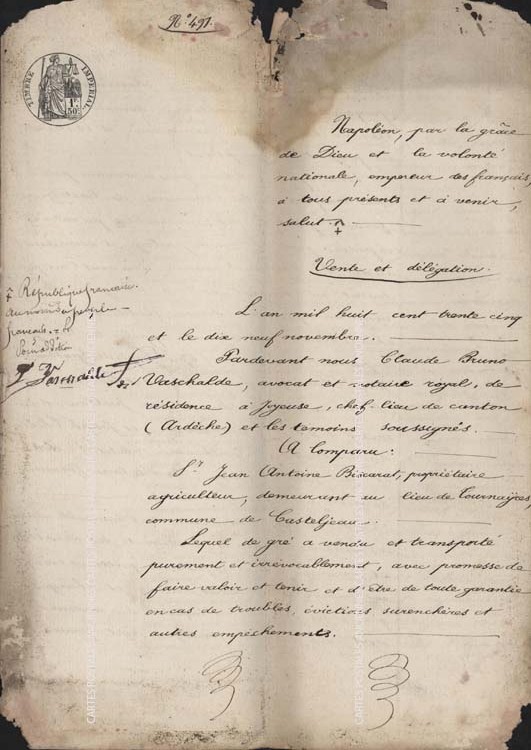 N° 497.
TIMBRE IMPERIAL
1f
50c
Napoléon, par la grâce
de Dieu et la volonté
nationale, empereur des français,
à tous présents et à venir,
salut.
Vente et délégation.
L'an mil huit cent trente cinq
et le dix neuf novembre.
Pardevant nous Claude Bruno
Vaschalde, avocat et notaire royal, de
résidence à Joyeuse, chef-lieu de canton
(Ardèche) et les témoins soussignés.
A Comparu:
Sr Jean Antoine Biscarat, propriétaire
agriculteur, demeurant au lieu de Tournaires,
commune de Casteljeau.
Lequel de gré a vendu et transporté
purement et irrévocablement, avec promesse de
faire valoir et tenir et d'être de toute garantie
en cas de troubles, évictions, surenchères et
autres empêchements.
République française.
au nom du peuple
français
CARTES